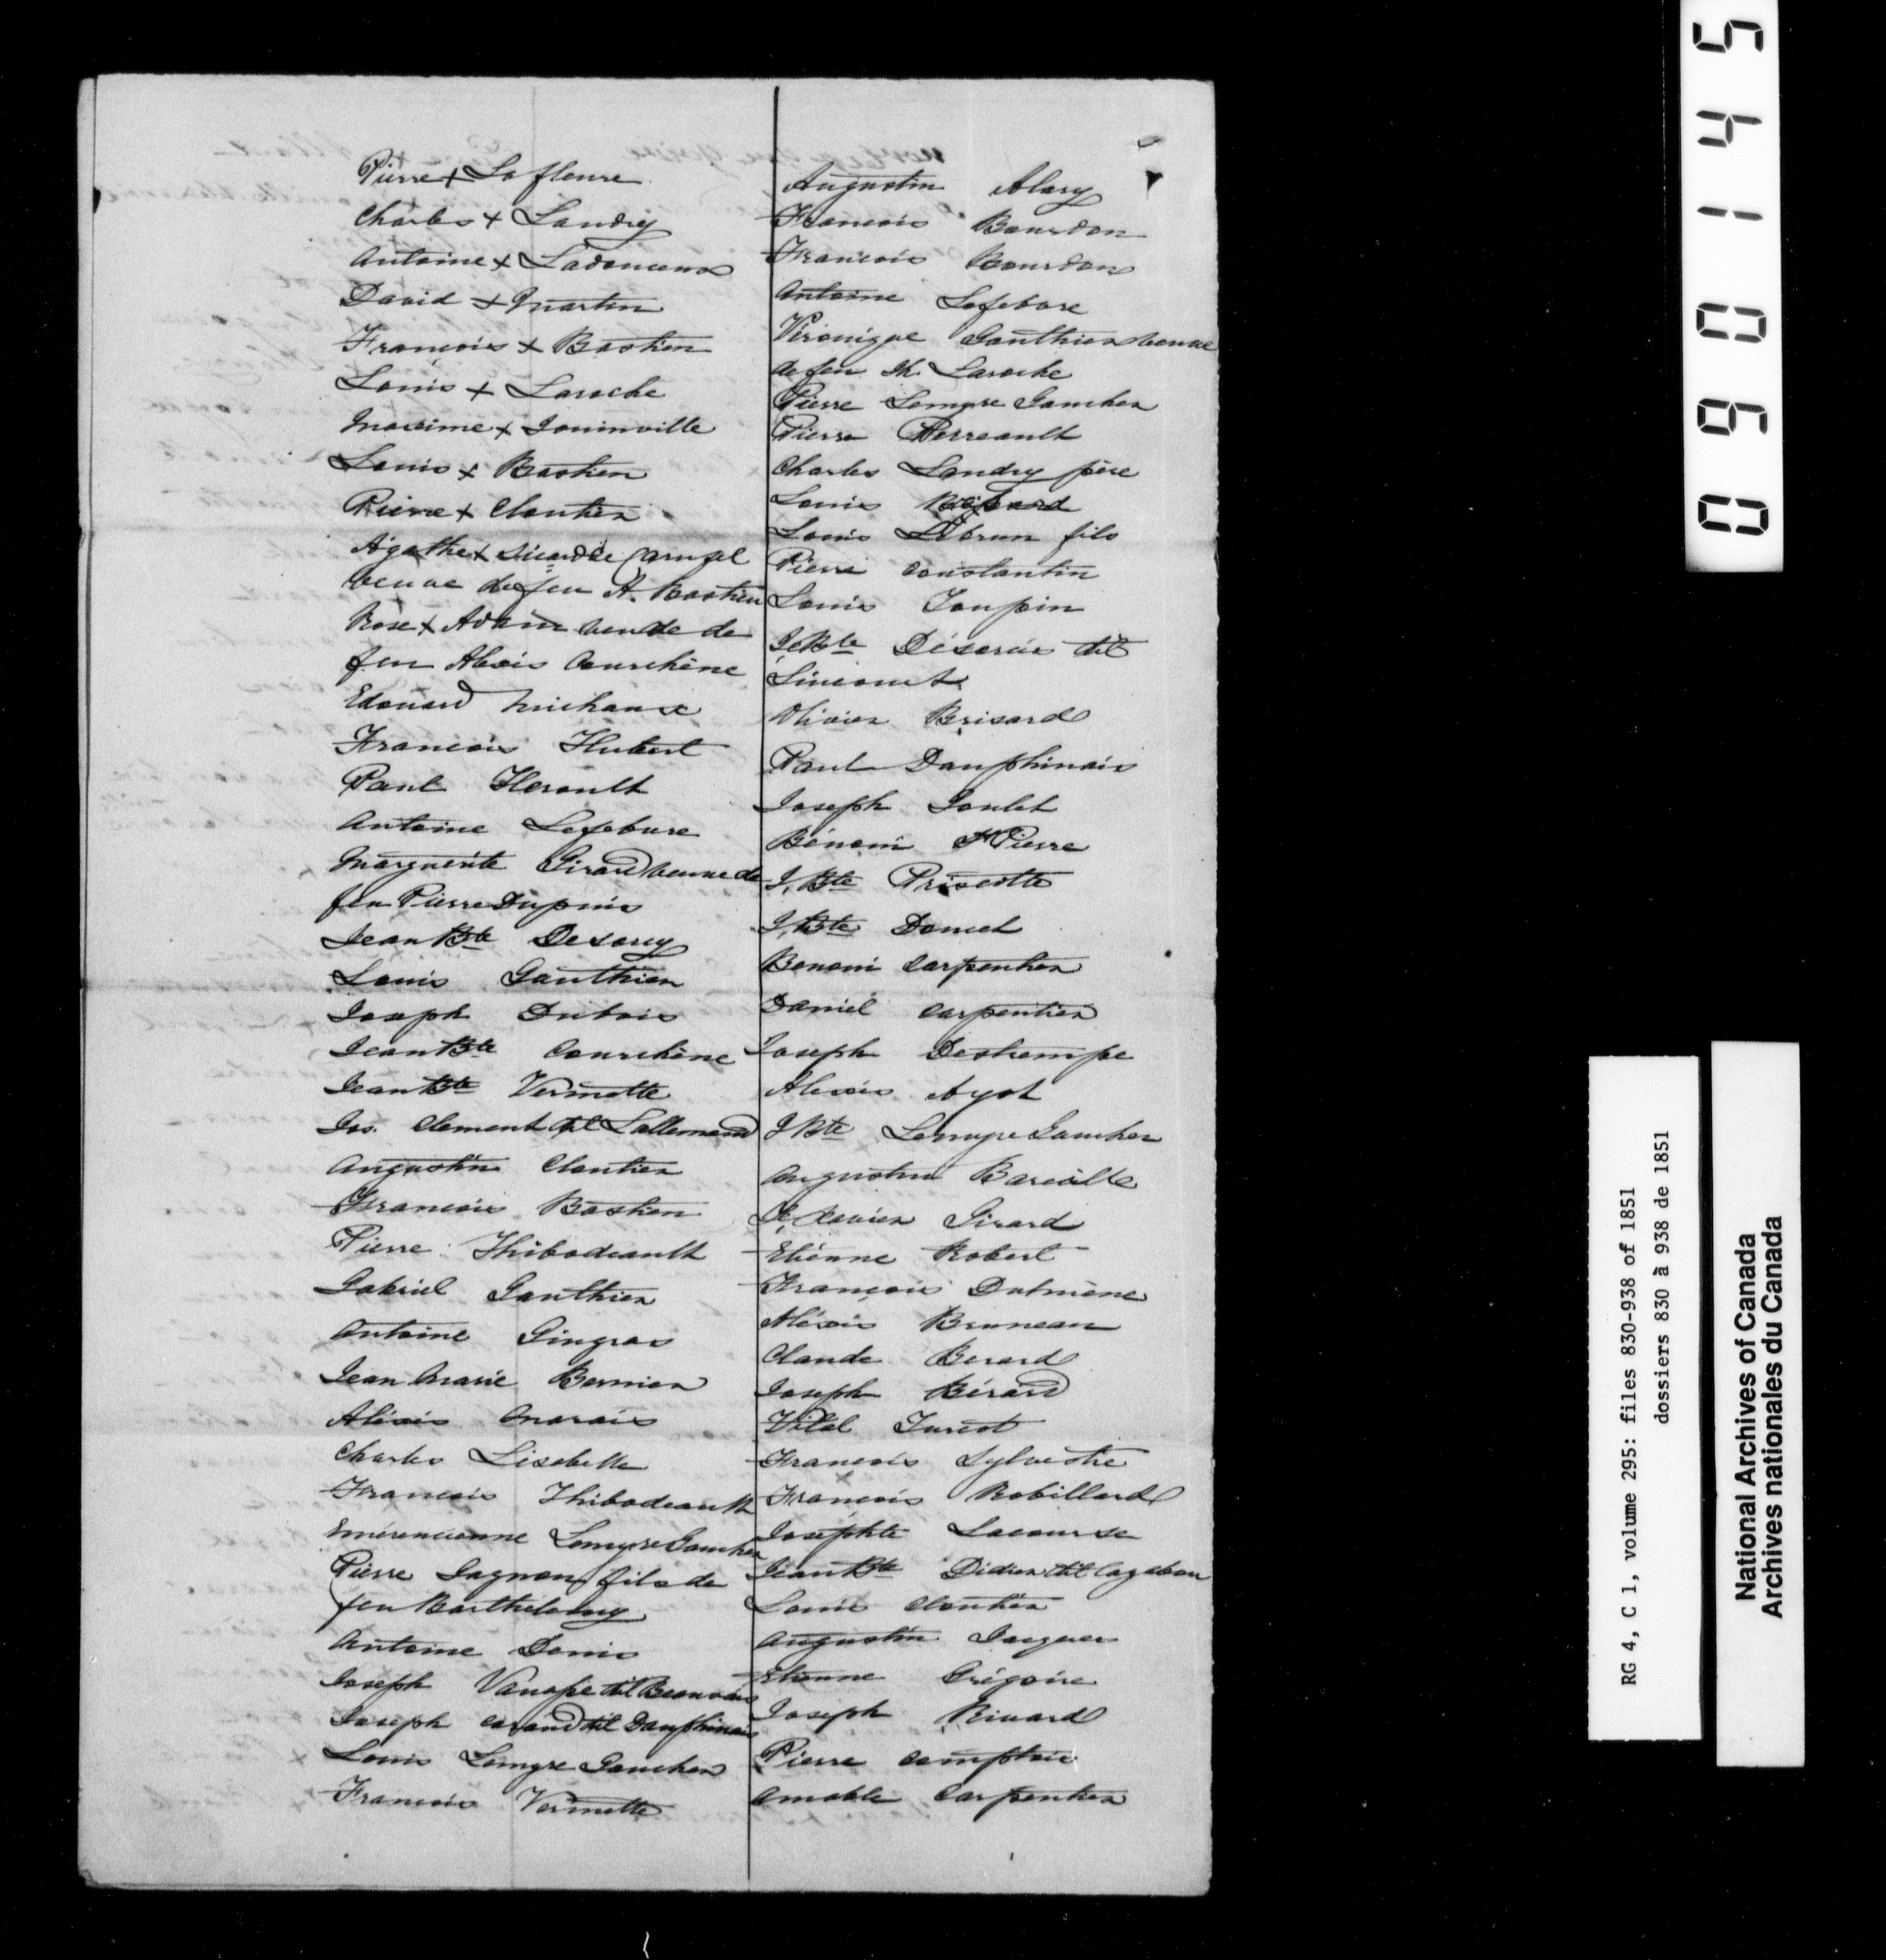 Pierre + Lafleure
Charles + Landry
Antoine + Ladouceur
David + Martin
François + Bastien
Louis + Laroche
Maxime + Jouinville
Louis + Bastien
Pierre + Cloutier
Agathe + Sicard de Carufel
veuve de feu A. Bastien
Rose + Adam veuve de
feu Alexis Courchène
Edouard Michaux
François Hubert
Paul Herault
Antoine Lefebure
Marguerite Girard veuve de
feu Pierre Dupuis
Jean Bte Desorcy
Louis Gauthier
Joseph Dubois
Jean Bte Courchène
Jean Bte Vermette
Jos. Clement dit Lallemand
Augustin Cloutier
François Bastien
Pierre Thibodeault
Gabriel Gauthier
Antoine Gingras
Jean Marie Bernier
Alixis Marais
Charles Lisebelle
François Thibodeault
Emérencienne Lemyre Gaucher
Pierre Gagnon fils de
feu Barthelemy
Antoine Denis
Joseph Vanasse dit Beauvais
Joseph Carond dit Dauphinais
Louis Lemyre Gaucher
François Vermette
Augustin Alary
François Bourdon
François Bourdon
Antoine Lefebvre
Véronique Gauthier veuve
de feu Jh. Laroche
Pierre Lemyre Gaucher
Pierre Perreault
Charles Landry père
Louis
Louis Lebrun fils
Pierre Constantin
Louis Toupin
J. Bte Désorcies dit
Lincourt
Olivier Brisard
Paul Dauphinais
Joseph Goulet
Bénoni St Pierre
J. Bte Priscotte
J. Bte Doucet
Benoni Carpentier
Daniel Carpentier
Joseph Deshempe
Alexis Ayot
J Bte Lemyre Gaucher
Augustin Bareille
F. Xavier Girard
Etiénne Robert
François Dutmène
Aléxis Bruneau
Claude Berard
Joseph Bérard
Vital Turcot
François Sylvestre
François Robillard
Josephte Lacourse
Jean Bte Didier dit Lagabou
Louis Cloutier
Augustin Jacques
Etienne Grégoire
Joseph Rivard
Pierre Comptois
Amable Carpentier
090145
RG 4, C 1, volume 295: files 830-938 of 1851
dossiers 830 à 938 de 1851
National Archives of Canada
Archives nationales du Canada